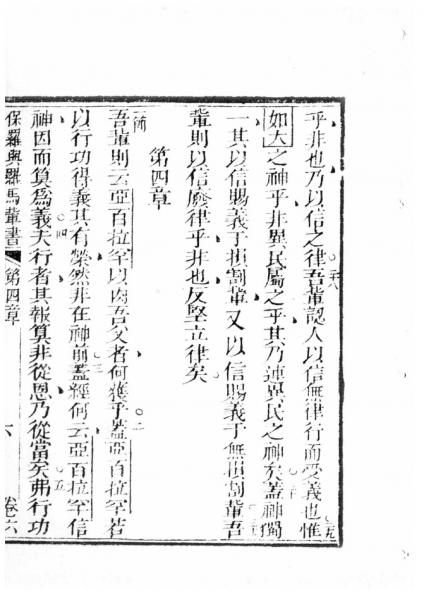 乎非也乃以信之律吾輩認人以信無律行而受義也惟
如大之神乎非異民屬之乎其乃連異民之神矣蓋神獨
一其以信賜義于損割輩又以信賜義于無損割輩吾
輩則以信廢律乎非也反堅立律矣
第四章
吾輩則云亞百拉罕以肉吾父者何獲乎蓋亞百拉罕若
以行功得義其有榮然非在神前蓋經何云亞百拉罕信
神因而算爲義夫行者其報算非從恩乃從當矣弗行功
保羅與羅馬輩書 第四章 六 卷六